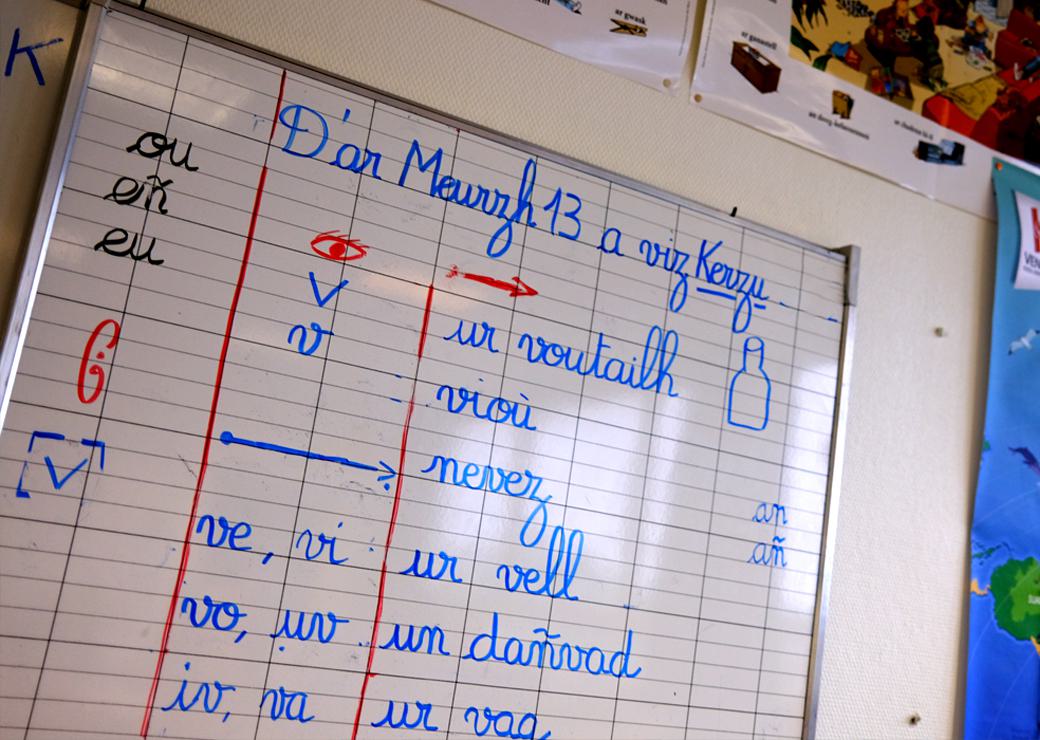 ar gwask
K
ar ganastell
D'ar Meurzh 13 a viz Kerzu
ou
eñ
eu
V
v
ur voutailh
vioù
[V]
nevez
an
añ
ve, vi : ur vell
vo, uv : un dañvad
iv, va ur vag